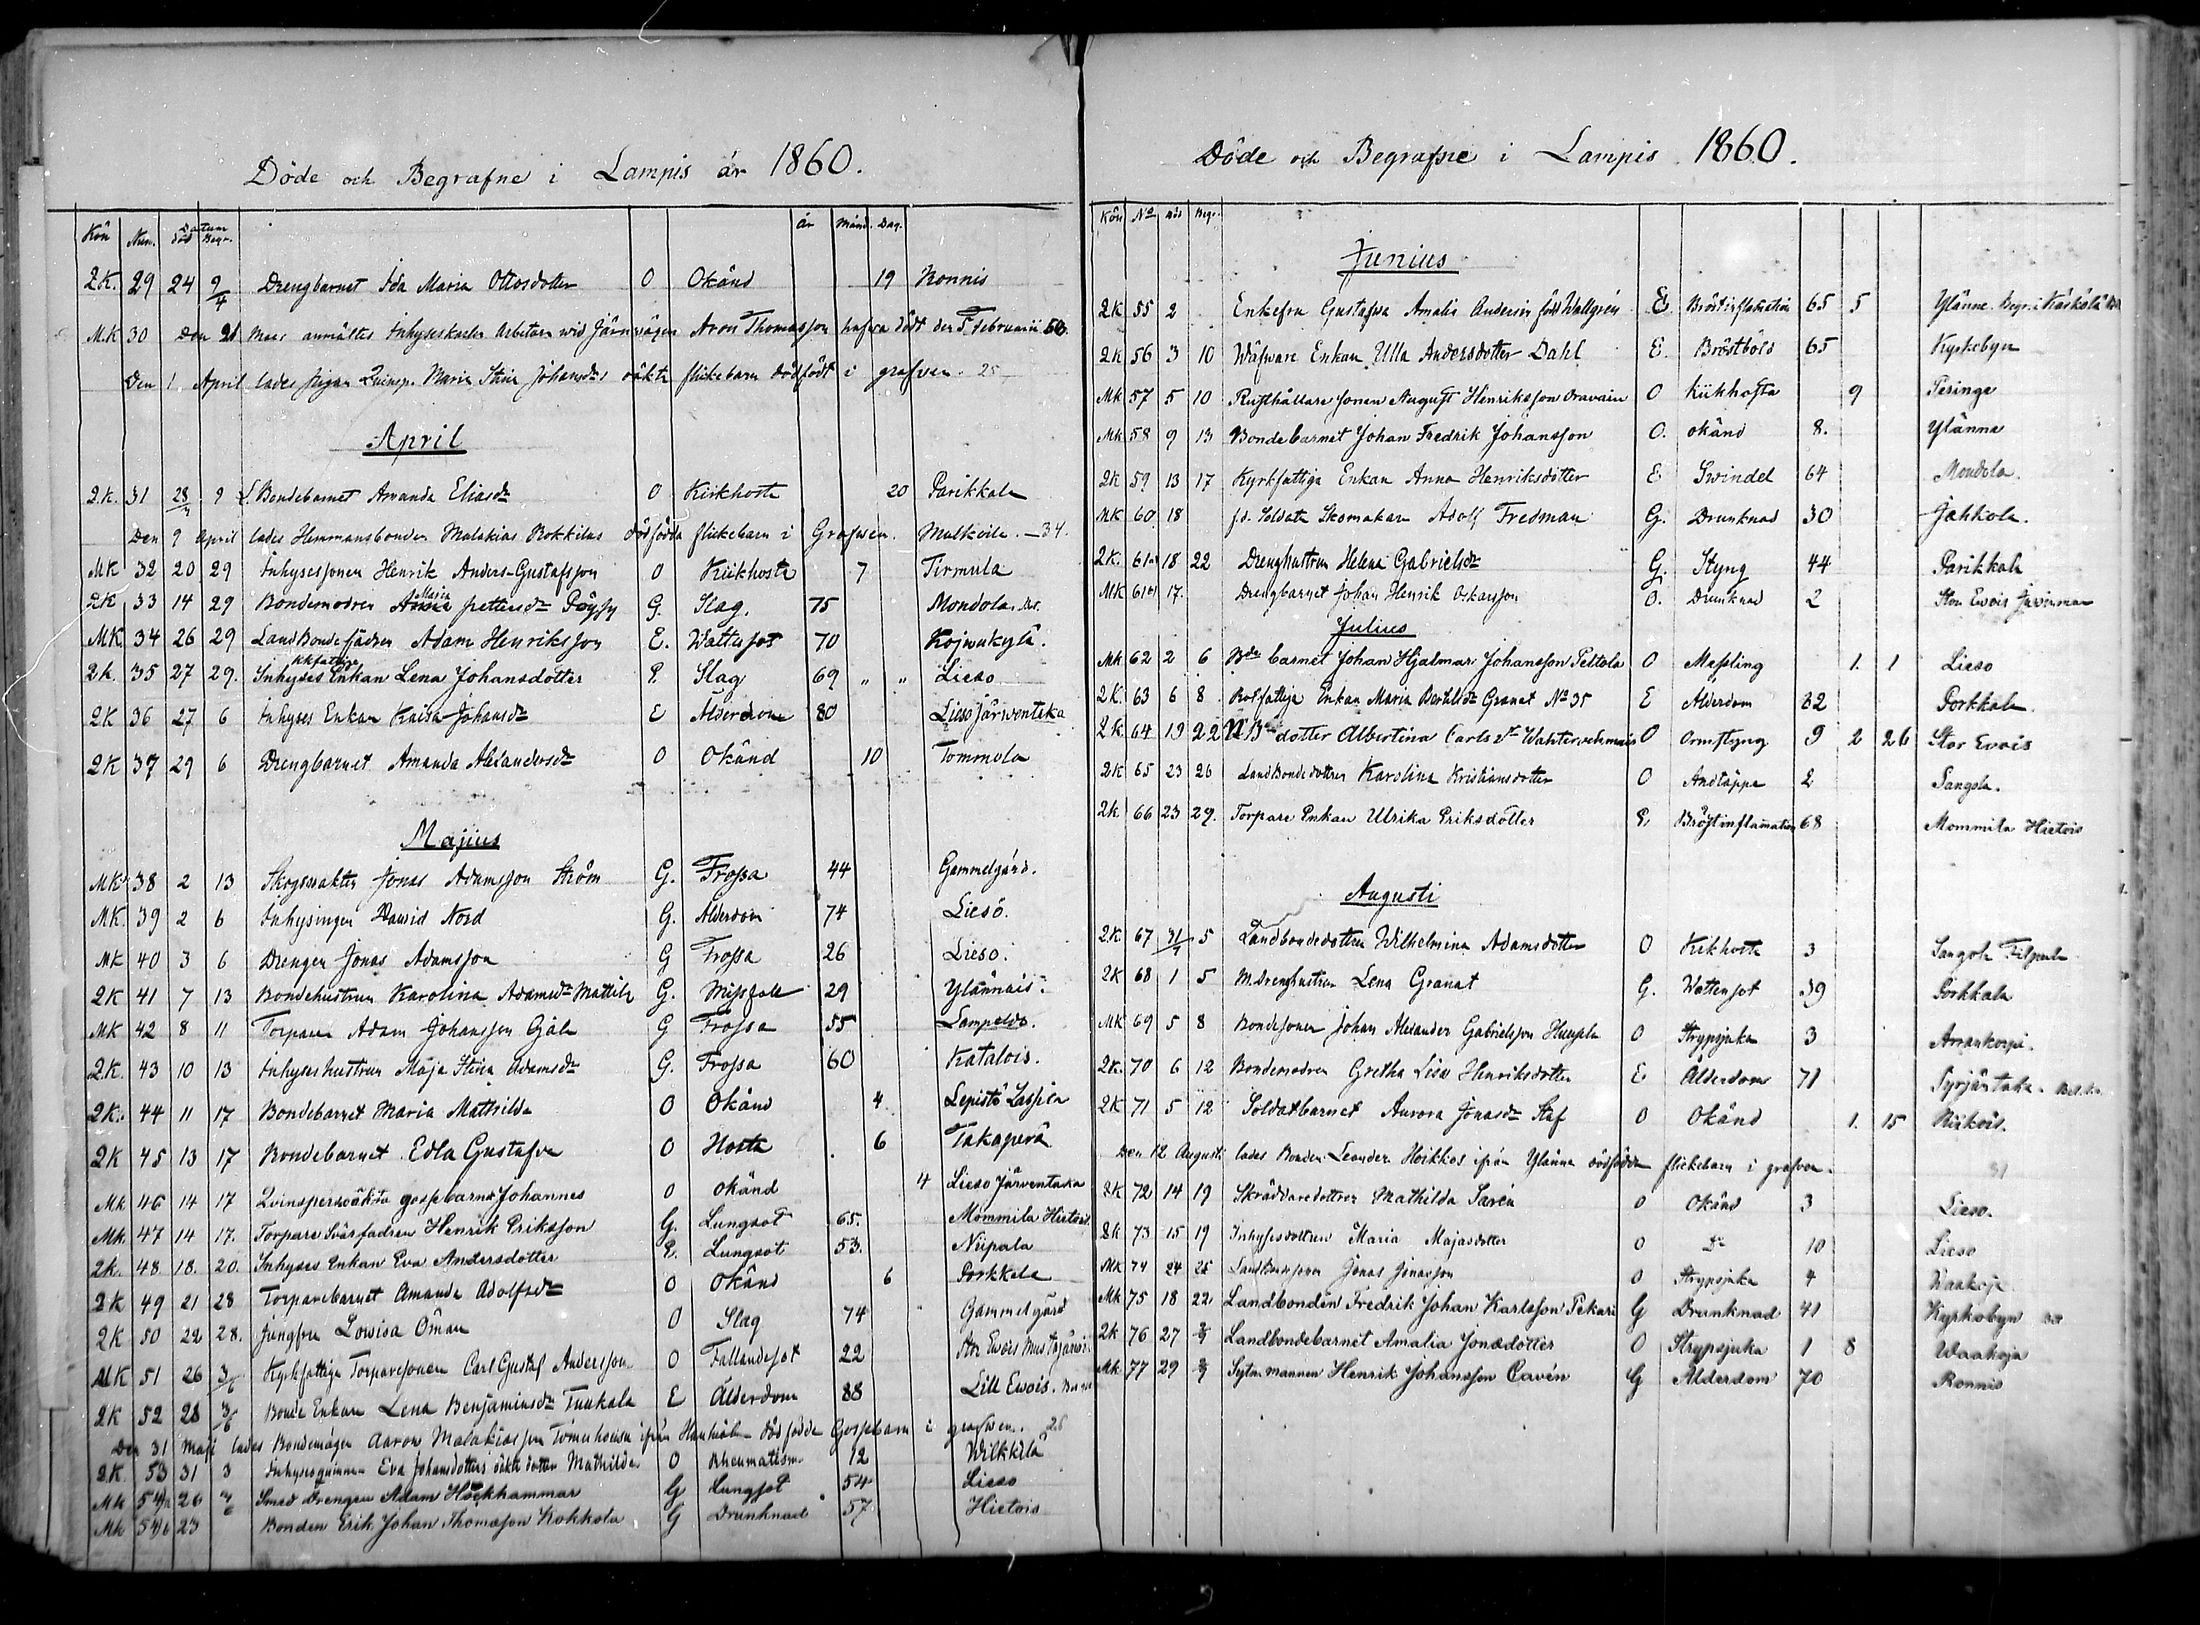 Döde och Begrafne i Lampis år 1860.
Kön Num. Datum död Begr. år Månd. Dag.
2K. 29 24 9/4 Drengbarnet Ida Maria Ottosdotter O Okänd 19 Ronnis
MK 30 Den 21 Mars anmältes Inhyseskarlen Arbetaren wid Järnwägen Aron Thomasson hafwa dödt den 5 Februarii 50.
Den 1 April lades pigan Quinsp. Maria Stina Johansd:s oäkta flickebarn dödfödt i grafven. 25
April
2K. 31 28/3 9 L. Bondebarnet Amanda Eliasdr O Kikhosta 20 Parikkala
Den 9 April lades Hemmansbonden Malakias Rokkilas dödfödda flickebarn i Grafwen. 34.
MK 32 20 29 Inhysessonen Henrik Anders-Gustafsson O Kikhosta 7 Tirmula
2K 33 14 29 Bondemodren Maria Pettersdr G. Slag. 75 Mondola.
MK. 34 26 29 Landbondefadren Adam Henriksson E. Wattusot 70
2K. 35 27 29. Inhyses Enkan Lena Johansdotter E Slag 69 " " Lieso
2K 36 27 6 Inhyses Enkan Kaisa Johansdr E Ålderdom 80 Lieso Järwentaka
2K 37 29 6 Drengbarnet Amanda Alexandersdr O Okänd 10 Tommola
Majus
MK 38 2 13 Skogswakten Jonas Adamsson Ström G. Frossa 44 Gammelgård.
MK. 39 2 6 Inhysingen Dawid Nord G. Alderdom 74 Liesö.
MK 40 3 6 Drengen Jonas Adamsson G Frossa 26 Lieso.
2K 41 7 13 Bondehustrun Karolina Adamsdr Mattila G. Missfall 29 Ylännäis.
MK 42 8 11 Torparen Adam Johansson G Frossa 55
2K. 43 10 13 Inhyseshustrun Maja Stina Adamsdr G. Frossa 60 Katalois.
2K. 44 11 17 Bondebarnet Maria Mathilda O Okänd 4 Lepistö
2K 45 13 17 Bondebarnet Edla Gustafva O Hosta 6 Takaperä
MK 46 14 17 Qvinspers oäkta gossebarnet Johannes O okänd 4 Lieso Järventaka
MK. 47 14 17. Torpare Svärfadren Henrik Eriksson G. Lungsot 65. Mommila Hietois
2K. 48. 18. 20. Inhyses Enkan Eva Andersdotter E. Lungsot 53. Niipala
2K 49 21 28 Torparebarnet Amanda Adolfsdr O Okänd 6 Porkkala
2K 50 22 28. Jungfru Lowisa Öman O Slag 74 Gammelgård
MK 51 26 3/6 Kyrkfattige Torparesonen Carl Gustaf Andersson O Fallandesot 22 Str Ewois Mustajärwi
2K 52 28 3/6 Bonde Enkan Lena Benjaminsdr Tuukala E Ålderdom 88 Lill Ewois.
Den 31 Maji lades Bondemågen Aaron Malakiasson ifrån dödfödda Gossebarn i grafwen. 26
2K. 53 31 3 Inhysesqvinnan Eva Johansdotters oäkta dotter Mathilda O Rheumatism 12 Wilkkilä
MK 54a 26 3/6 Smed Drengen Adam Höckhammar G Lungsot 54 Lieso
MK 54b 23 Bonden Erik Johan Thomasson Kokkola G Drunknad 57 Hietois
Döde och Begrafne i Lampis 1860.
Kön No död Begr.
Junius
2K 55 2 Enkefru Gustafva Amalia Andersin född Wallgrén E. Bröstinflammation 65 5 Ylänne. Begr. i
2K 56 3 10 Wäfware Enkan Ulla Andersdotter Dahl E. Bröstböld 65 Kyrkobyn
MK 57 5 10 Rusthållare sonen August Henriksson Oravain O Kikhosta 9 Teringe
MK 58 9 13 Bondebarnet Johan Fredrik Johansson O. okänd 8. Ylänne
2K 59 13 17 Kyrkfattiga Enkan Anna Henriksdotter E Swindel 64 Mondola.
MK 60 18 f.d. Soldaten Skomakaren Adolf Fredman G. Drunknad 30 Jahkola.
2K. 61a 18 22 Drenghustrun Helena Gabrielsdr G. Styng 44 Parikkala
MK 61b 17. Drengbarnet Johan Henrik Oskarsson O. Drunknad 2 Stor Ewois
Julius
MK 62 2 6 Bde barnet Johan Hjalmar Johansson Peltola O Messling 1. 1 Lieso
2K 63 6 8 Rotfattige Enkan Maria Bertilsdr Granat No 35 E Alderdom 82 Porkkala
2K. 64 19 22 dotter Albertina Carlsdr O Ormstyng 9 2 26 Stor Ewois
2K 65 23 26 Landbondedottren Karolina Kristiansdotter O Andtäppa 2 Sangola.
2K 66 23 29. Torpare Enkan Ulrika Eriksdotter E. Bröstinflamation 68 Mommila Hietois
Augusti
2K 67 31/7 5 Landbondedottren Wilhelmina Adamsdotter O Kikhosta 3
2K 68 1 5 M.drenghustrun Lena Granat G. Wattensot 39 Porkkala
MK 69 5 8 Bondesonen Johan Alexander Gabrielsson O Strypsjuka 3
2K. 70 6 12 Bondemodren Gretha Lisa Henriksdotter E Ålderdom 71 Syrjäntaka.
2K 71 5 12 Soldatbarnet Aurora Jonasdr Staf O Okänd 1. 15
Den 12 Augusti lades Bonden Leander Heikkos ifrån Ylänne dödfödda flickebarn i grafven. 31
2K 72 14 19 Skräddaredottren Mathilda Sarén O Okänd 3 Lieso.
2K 73 15 19 Inhysesdottren Maria Majasdotter O Do 10 Lieso
MK 74 24 26 Landbondesonen Jonas Jonasson O Strypsjuka 4 Waakoja
MK 75 18 22 Landbonden Fredrik Johan Karlsson Pekari G Drunknad 41 Kyrkobyn
2K 76 27 2/9 Landbondebarnet Amalia Jonasdotter O Strypsjuka 1 8 Waakoja
MK 77 29 2/9 Sytn.mannen Henrik Johansson Cavén G Alderdom 70 Ronnis